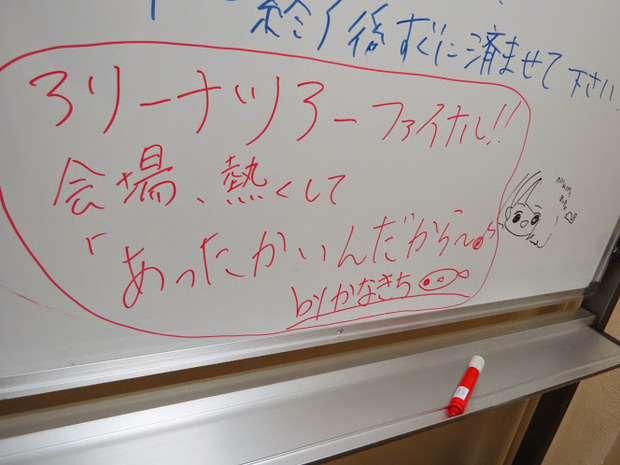 終了後すぐに済ませて下さい
アリーナツアーファイナル!!
会場、熱くして
「あったかいんだから〜♪」
byかなきち